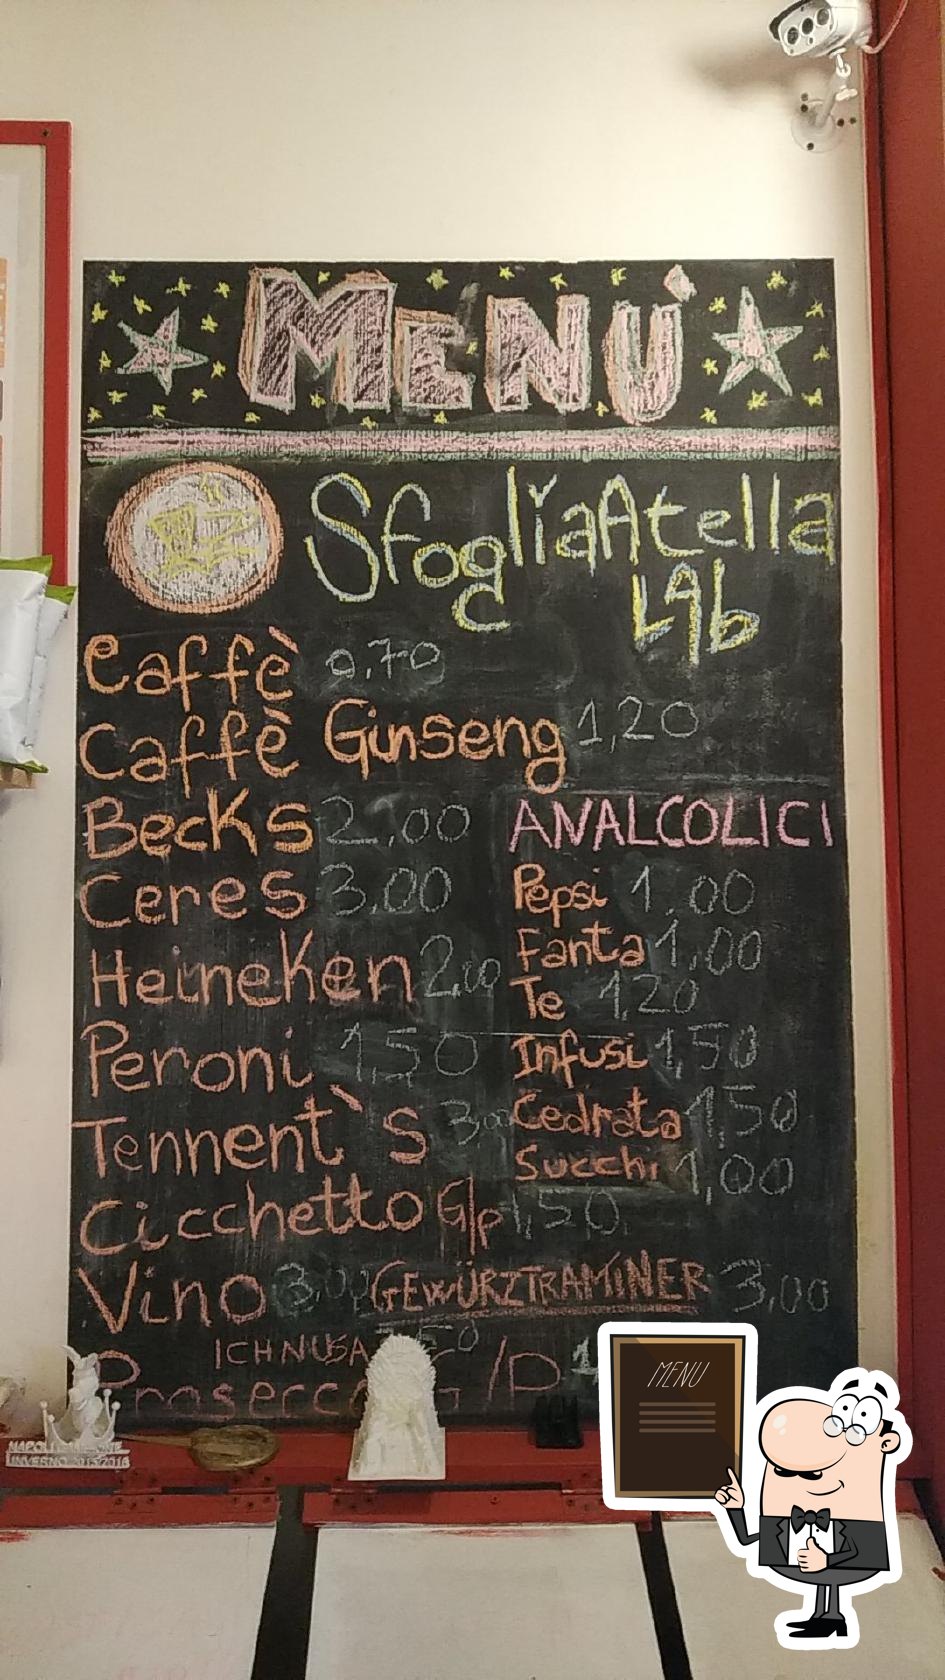 MENÙ
SfogliaAtella
LAb
Caffè 0,70
Caffè Ginseng 1,20
Becks 2,00
Ceres 3,00
Heineken 2,00
Peroni 1,50
Tennent`s 3,00
Cicchetto G/p 1,50
Vino 3,00 GEWÜRZTRAMINER 3,00
ICHNUSA
Prosecco G/P
ANALCOLICI
Pepsi 1,00
Fanta 1,00
Te 1,20
Infusi 1,50
Cedrata 1,50
Succhi 1,00
NAPOLI CAMPIONE
INVERNO 2015/2016
MENU